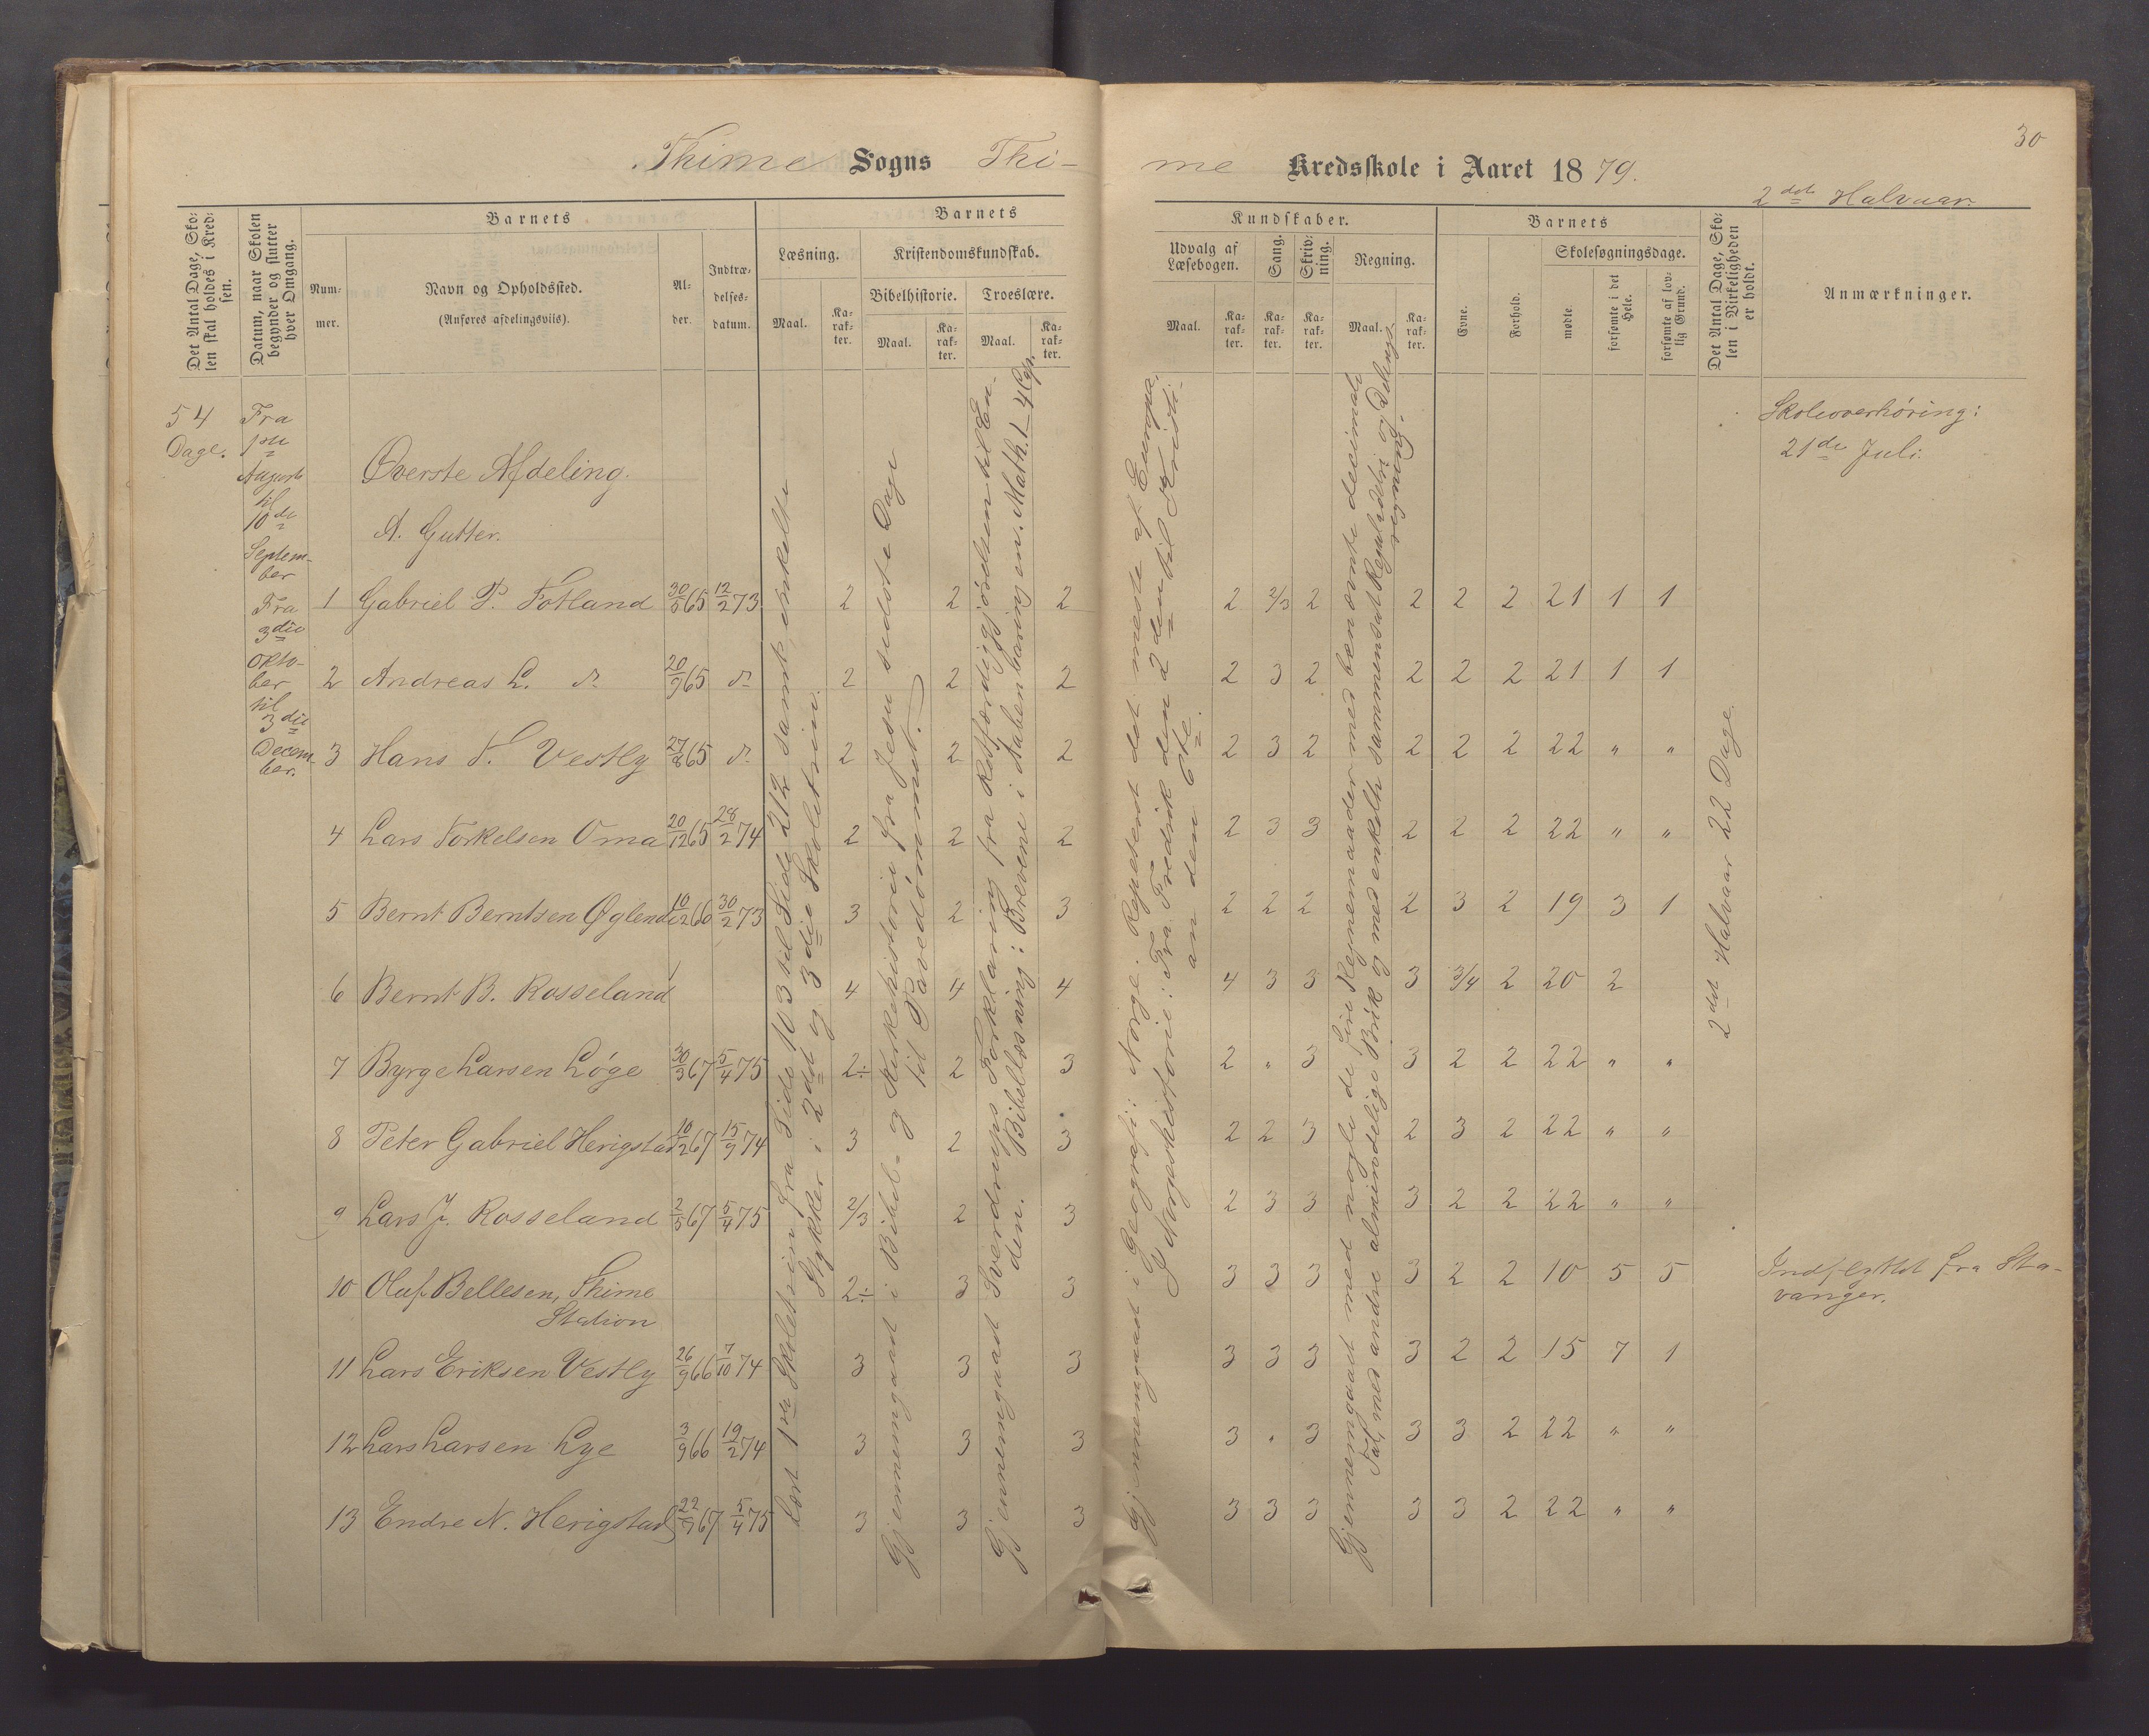 30
Thime Sogns Thime Kredsskole i Aaret 1879.
2det Halvaar
Det Antal Dage, Skolen skal holdes i Kredsen.
Datum, naar Skolen begynder og slutter hver Omgang.
Barnets
Nummer.
Navn og Opholdssted.
(Anføres afdelingsviis).
Alder.
Indtrædelsesdatum.
Barnets
Læsning.
Maal.
Karakter.
Kristendomskundskab.
Bibelhistorie.
Maal.
Karakter.
Troeslære.
Maal.
Karakter.
Kundskaber.
Udvalg af Læsebogen.
Maal.
Karakter.
Sang.
Karakter.
Skrivning.
Karakter.
Regning.
Maal.
Karakter.
Barnets
Evne.
Forhold.
Skolesøgningsdage.
mødte.
forsømte i det Hele.
forsømte af lovlig Grund.
Det Antal Dage, Skolen i Virkeligheden er holdt.
Anmærkninger.
54
Dage.
Fra
1ste
August
til
10de
September
Fra
3die
Oktober
til
3die
December.
Øverste Afdeling.
A. Gutter.
1 Gabriel P. Fotland 30/5 65 12/2 73 2 2 2 2 2/3 2 2 2 2 21 1 1
2 Andreas L. do 20/9 65 do 2 2 2 2 3 2 2 2 2 21 1 1
3 Hans T. Vestly 27/8 65 do 2 2 2 2 3 2 2 2 2 22 " "
4 Lars Torkelsen Oma 20/12 65 28/2 74 2 2 2 2 3 3 2 2 2 22 " "
5 Bernt Berntsen Øglend 10/2 66 30/2 73 3 2 3 2 2 2 2 3 2 19 3 1
6 Bernt B. Rosseland 4 4 4 4 3 3 3 3/4 2 20 2
7 Byrge Larsen Løge 30/3 67 5/4 75 2÷ 2 3 2 " 3 3 2 2 22 " "
8 Peter Gabriel Herigstad 10/2 67 15/9 74 3 2 3 2 2 3 2 3 2 22 " "
9 Lars J. Rosseland 2/5 67 5/4 75 2/3 2 3 2 3 3 3 2 2 22 " "
10 Oluf Bellesen, Thime Station 2÷ 3 3 3 3 3 3 2 2 10 5 5
11 Lars Eriksen Vestly 26/9 66 7/10 74 3 3 3 3 3 3 3 2 2 15 7 1
12 Lars Larsen Lye 3/9 66 19/2 74 3 3 3 3 " 3 3 3 2 22 " "
13 Endre N. Herigstad 22/7 67 5/4 75 3 3 3 3 3 3 3 3 2 22 " "
Læst 1ste Skoletrin fra Side 103 til Side 212 samt enkelte
Stykker i 2det og 3die Skoletrin.
Gjennemgaaet i Bibel- og Kirkehistorie fra Jesu sidste Dage
til Pavedømmet.
Gjennemgaaet Sverdrups Forklaring fra Retfærdiggjørelsen til Enden. Bibellæsning: Brevene i Aabenbaringen. Math. 1-4 Cap.
Gjennemgaaet i Geografi: Norge. Repeteret det meste af Europa.
I Norgeshistorie: Fra Fredrik den 2den til Kristian den 6te.
Gjennemgaaet med nogle de fire Regnemaader med benævnte decimale
Tal, med andre almindelige Brøk og med enkelte sammensat Reguladetri og Delingsregning.
2det Halvaar 22 Dage.
Skoleoverhøring:
21de Juli.
Indflyttet fra Stavanger.